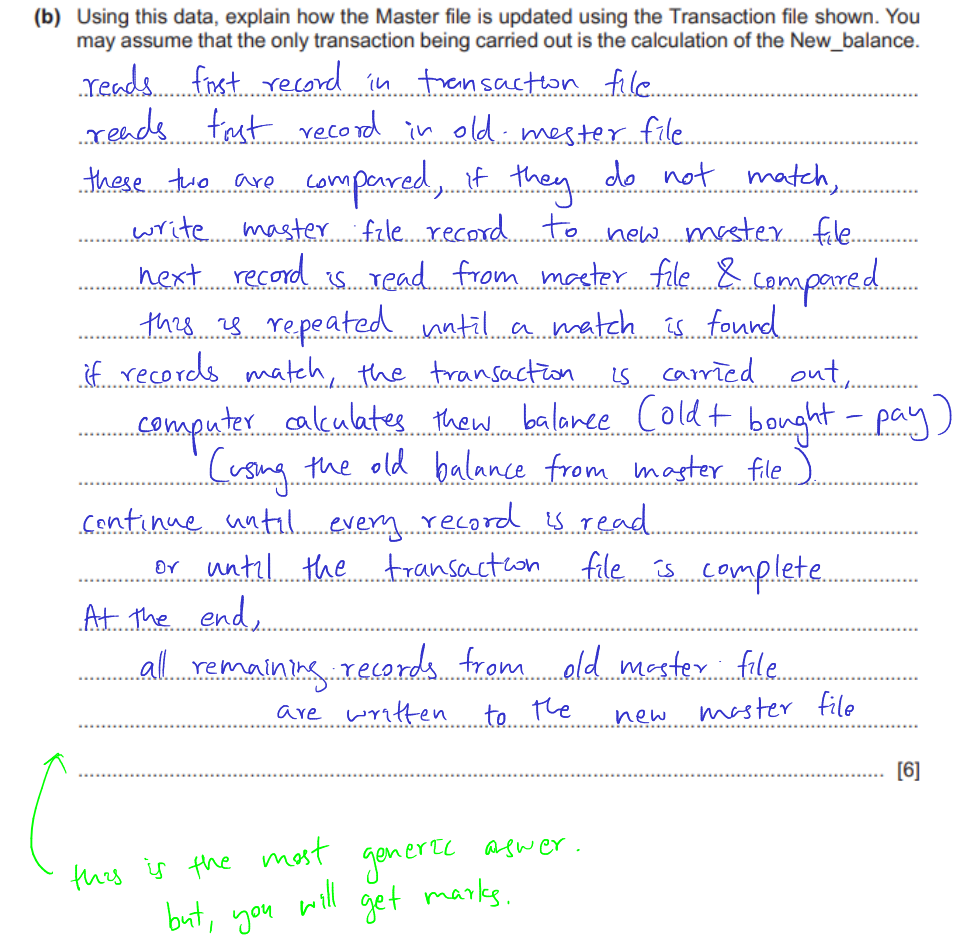 (b) Using this data, explain how the Master file is updated using the Transaction file shown. You
may assume that the only transaction being carried out is the calculation of the New_balance.
reads first record in transaction file
reads first record in old master file
these two are compared, if they do not match,
write master file record to new master file
next record is read from master file & compared
this is repeated until a match is found
if records match, the transaction is carried out,
computer calculates thew balance (old + bought - pay)
(using the old balance from master file)
continue until every record is read
or until the transaction file is complete
At the end,
all remaining records from old master file
are written to the new master file
[6]
this is the most generic aswer.
but, you will get marks.